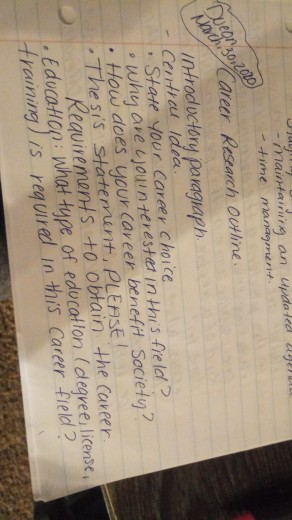 - maintaining an updated agenda
- time managment.
Career Research outline.
Introductory paragraph.
- Central Idea.
• State your career choice
• Why are you interested in this field?
• How does your career benefit society?
• Thesis statement, PLEASE!
Requirements to obtain the career
• Education: What type of education (degree, license,
training) is required in this career field?